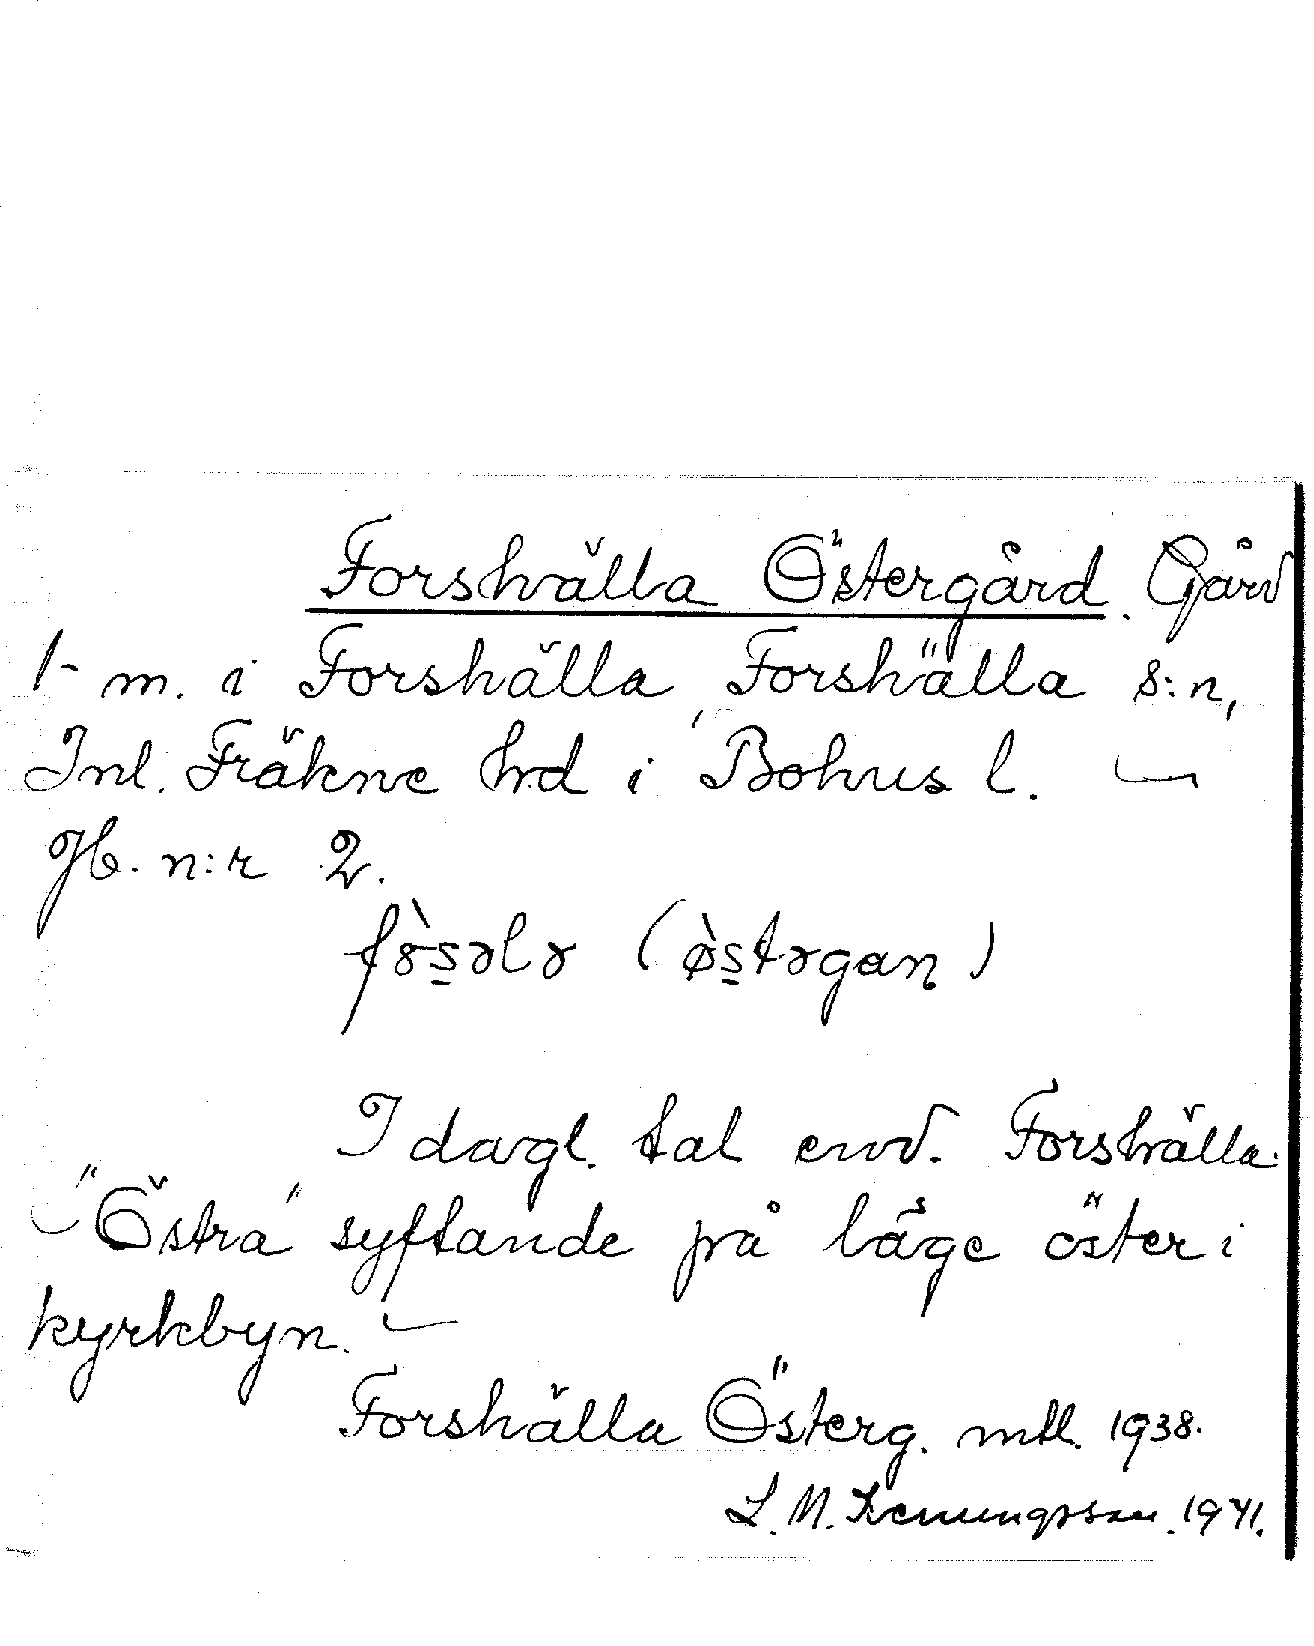 Forshälla Östergård. Gård
1 m. i Forshälla, Forshälla s:n,
Inl. Fräkne hrd i Bohus l. —
Jb. n:r 2.
fɤ̀s̱əlɤ (ø̀s̱tərgan)
I dagl. tal envd. Forshälla
"Östra" syftande på läge öster i
kyrkbyn. —
Forshälla Österg. mtl. 1938.
L. M. 1941.